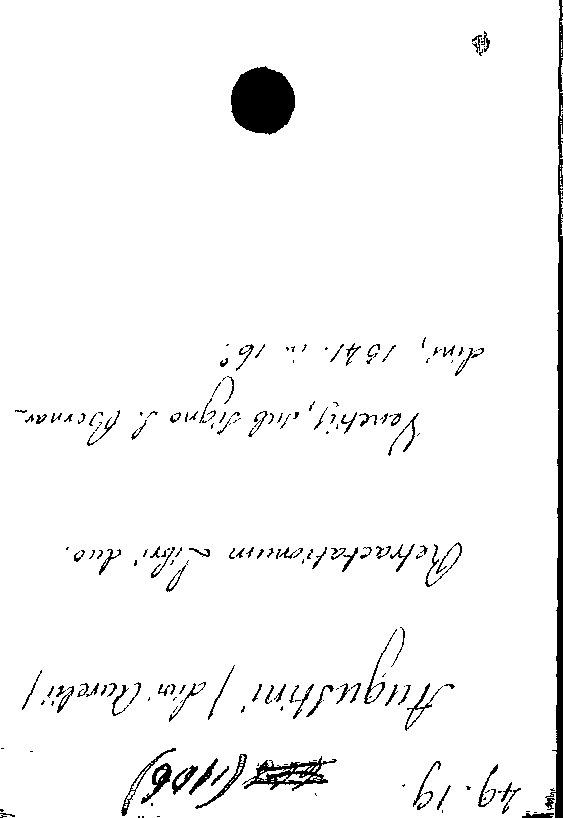 49.19.
Augustini (divi Aurelii)
Retractationum Libri duo.
Venetijs, sub signo S. Bernar-
dini, 1541. in 16º.